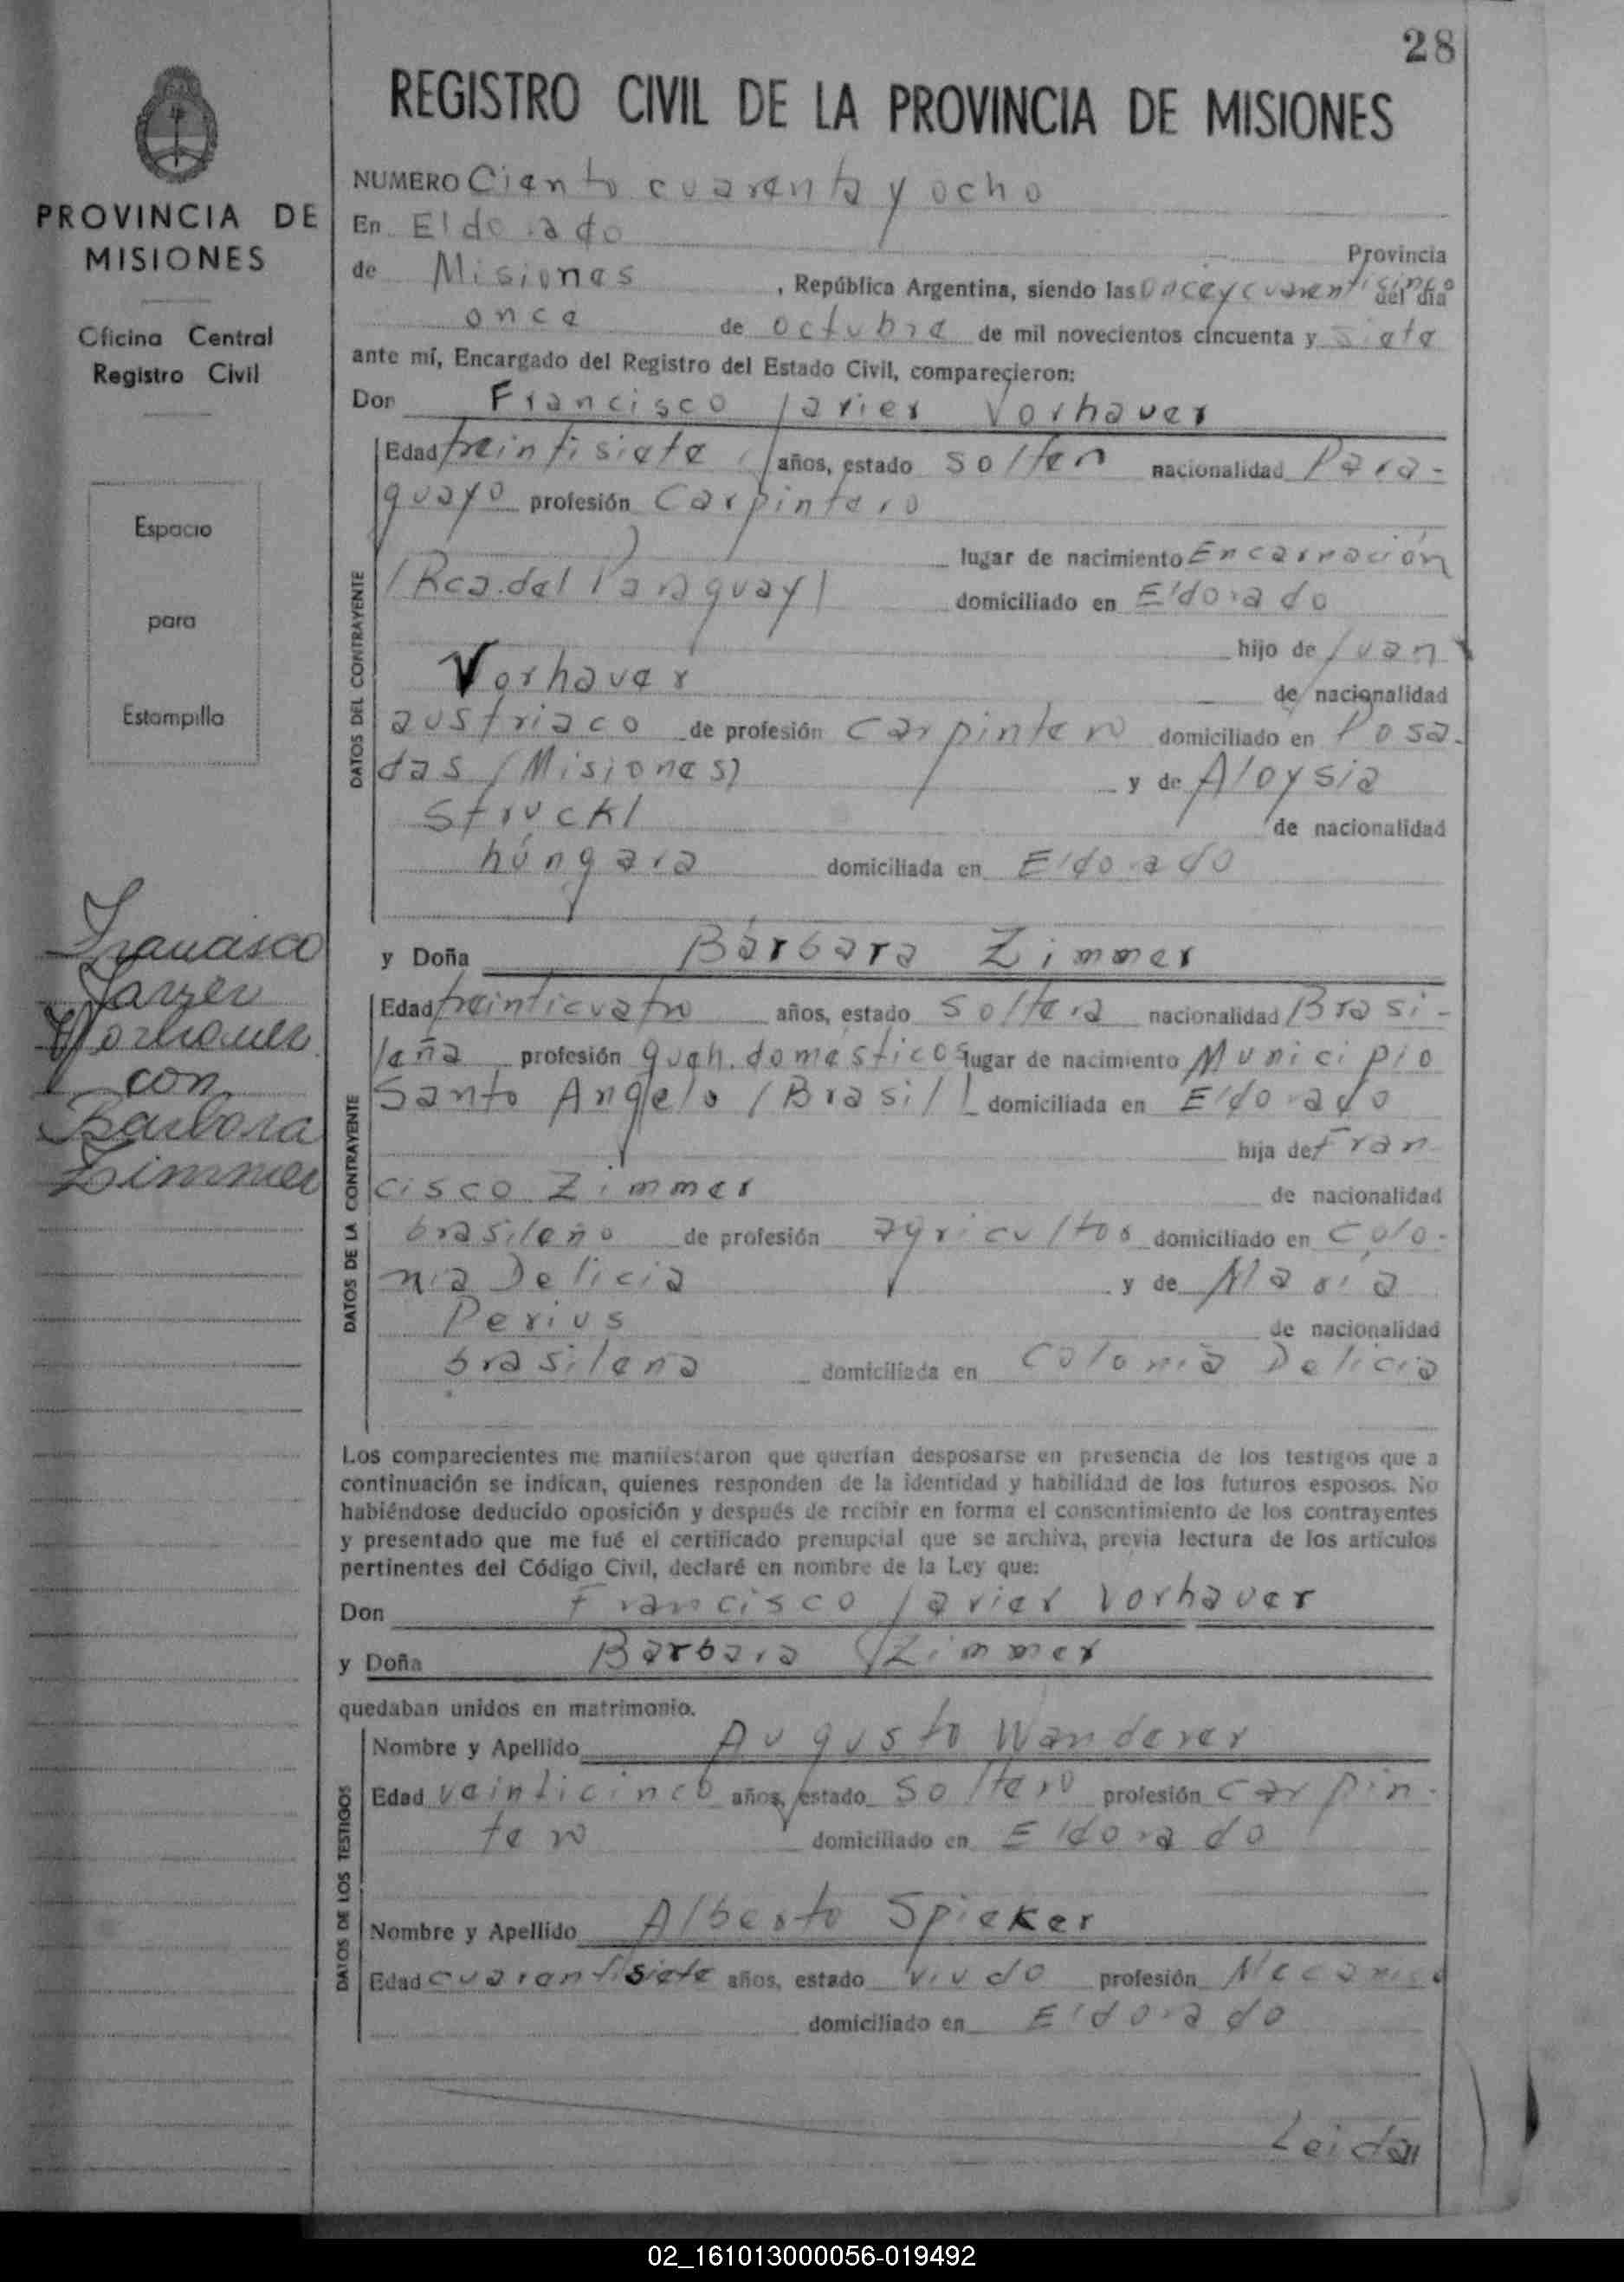 28
REGISTRO CIVIL DE LA PROVINCIA DE MISIONES
PROVINCIA DE
MISIONES
Oficina Central
Registro Civil
Espacio
para
Estampilla
Francisco
Javier
Vorhauer
con
Barbara
Zimmer
NUMERO Ciento cuarenta y ocho
En Eldorado
Provincia
de Misiones, República Argentina, siendo las once y cuarenticinco del día
once de octubre de mil novecientos cincuenta y siete
ante mí, Encargado del Registro del Estado Civil, comparecieron:
Don Francisco Javier Vorhauer
DATOS DEL CONTRAYENTE
Edad treintisiete años, estado soltero nacionalidad Para-
guayo profesión Carpintero
lugar de nacimiento Encarnación
(Rca. del Paraguay) domiciliado en Eldorado
hijo de Juan
Vorhauer de nacionalidad
austriaco de profesión carpintero domiciliado en Posa-
das (Misiones) y de Aloysia
Struckl de nacionalidad
húngara domiciliada en Eldorado
y Doña Bárbara Zimmer
DATOS DE LA CONTRAYENTE
Edad treinticuatro años, estado soltera nacionalidad Brasi-
leña profesión queh. domésticos lugar de nacimiento Municipio
Santo Angelo (Brasil) domiciliada en Eldorado
hija de Fran
cisco Zimmer de nacionalidad
brasileño de profesión agricultor domiciliado en Colo-
nia Delicia y de María
Perius de nacionalidad
brasileña domiciliada en Colonia Delicia
Los comparecientes me manifestaron que querían desposarse en presencia de los testigos que a
continuación se indican, quienes responden de la identidad y habilidad de los futuros esposos. No
habiéndose deducido oposición y después de recibir en forma el consentimiento de los contrayentes
y presentado que me fué el certificado prenupcial que se archiva, previa lectura de los artículos
pertinentes del Código Civil, declaré en nombre de la Ley que:
Don Francisco Javier Vorhauer
y Doña Bárbara Zimmer
quedaban unidos en matrimonio.
DATOS DE LOS TESTIGOS
Nombre y Apellido Augusto Wanderer
Edad veinticinco años, estado soltero profesión carpin-
tero domiciliado en Eldorado
Nombre y Apellido Alberto Spieker
Edad cuarentisiete años, estado viudo profesión Mecánico
domiciliado en Eldorado
Leida
02_161013000056-019492